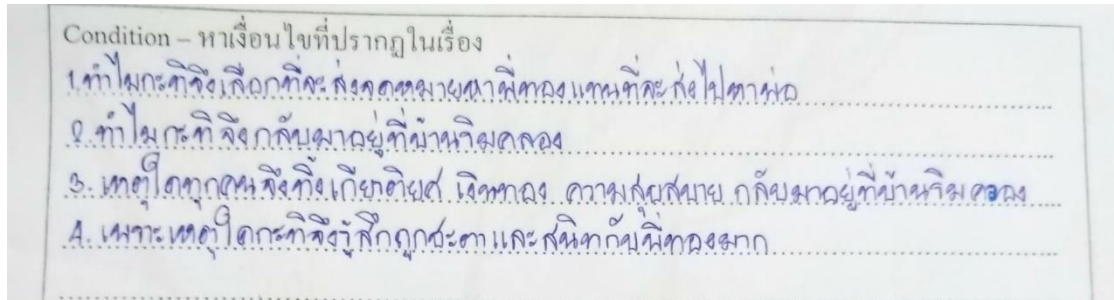 Condition – หาเงื่อนไขที่ปรากฏในเรื่อง
1. ทำไมกะทิจึงเลือกที่จะส่งจดหมายหาพี่ทองแทนที่จะส่งไปหาพ่อ
2. ทำไมกะทิจึงกลับมาอยู่ที่บ้านริมคลอง
3. เหตุใดทุกคนจึงทิ้งเกียรติยศ เงินทอง ความสุขสบาย กลับมาอยู่ที่บ้านริมคลอง
4. เพราะเหตุใดกะทิจึงรู้สึกถูกชะตาและสนิทกับพี่ทองมาก